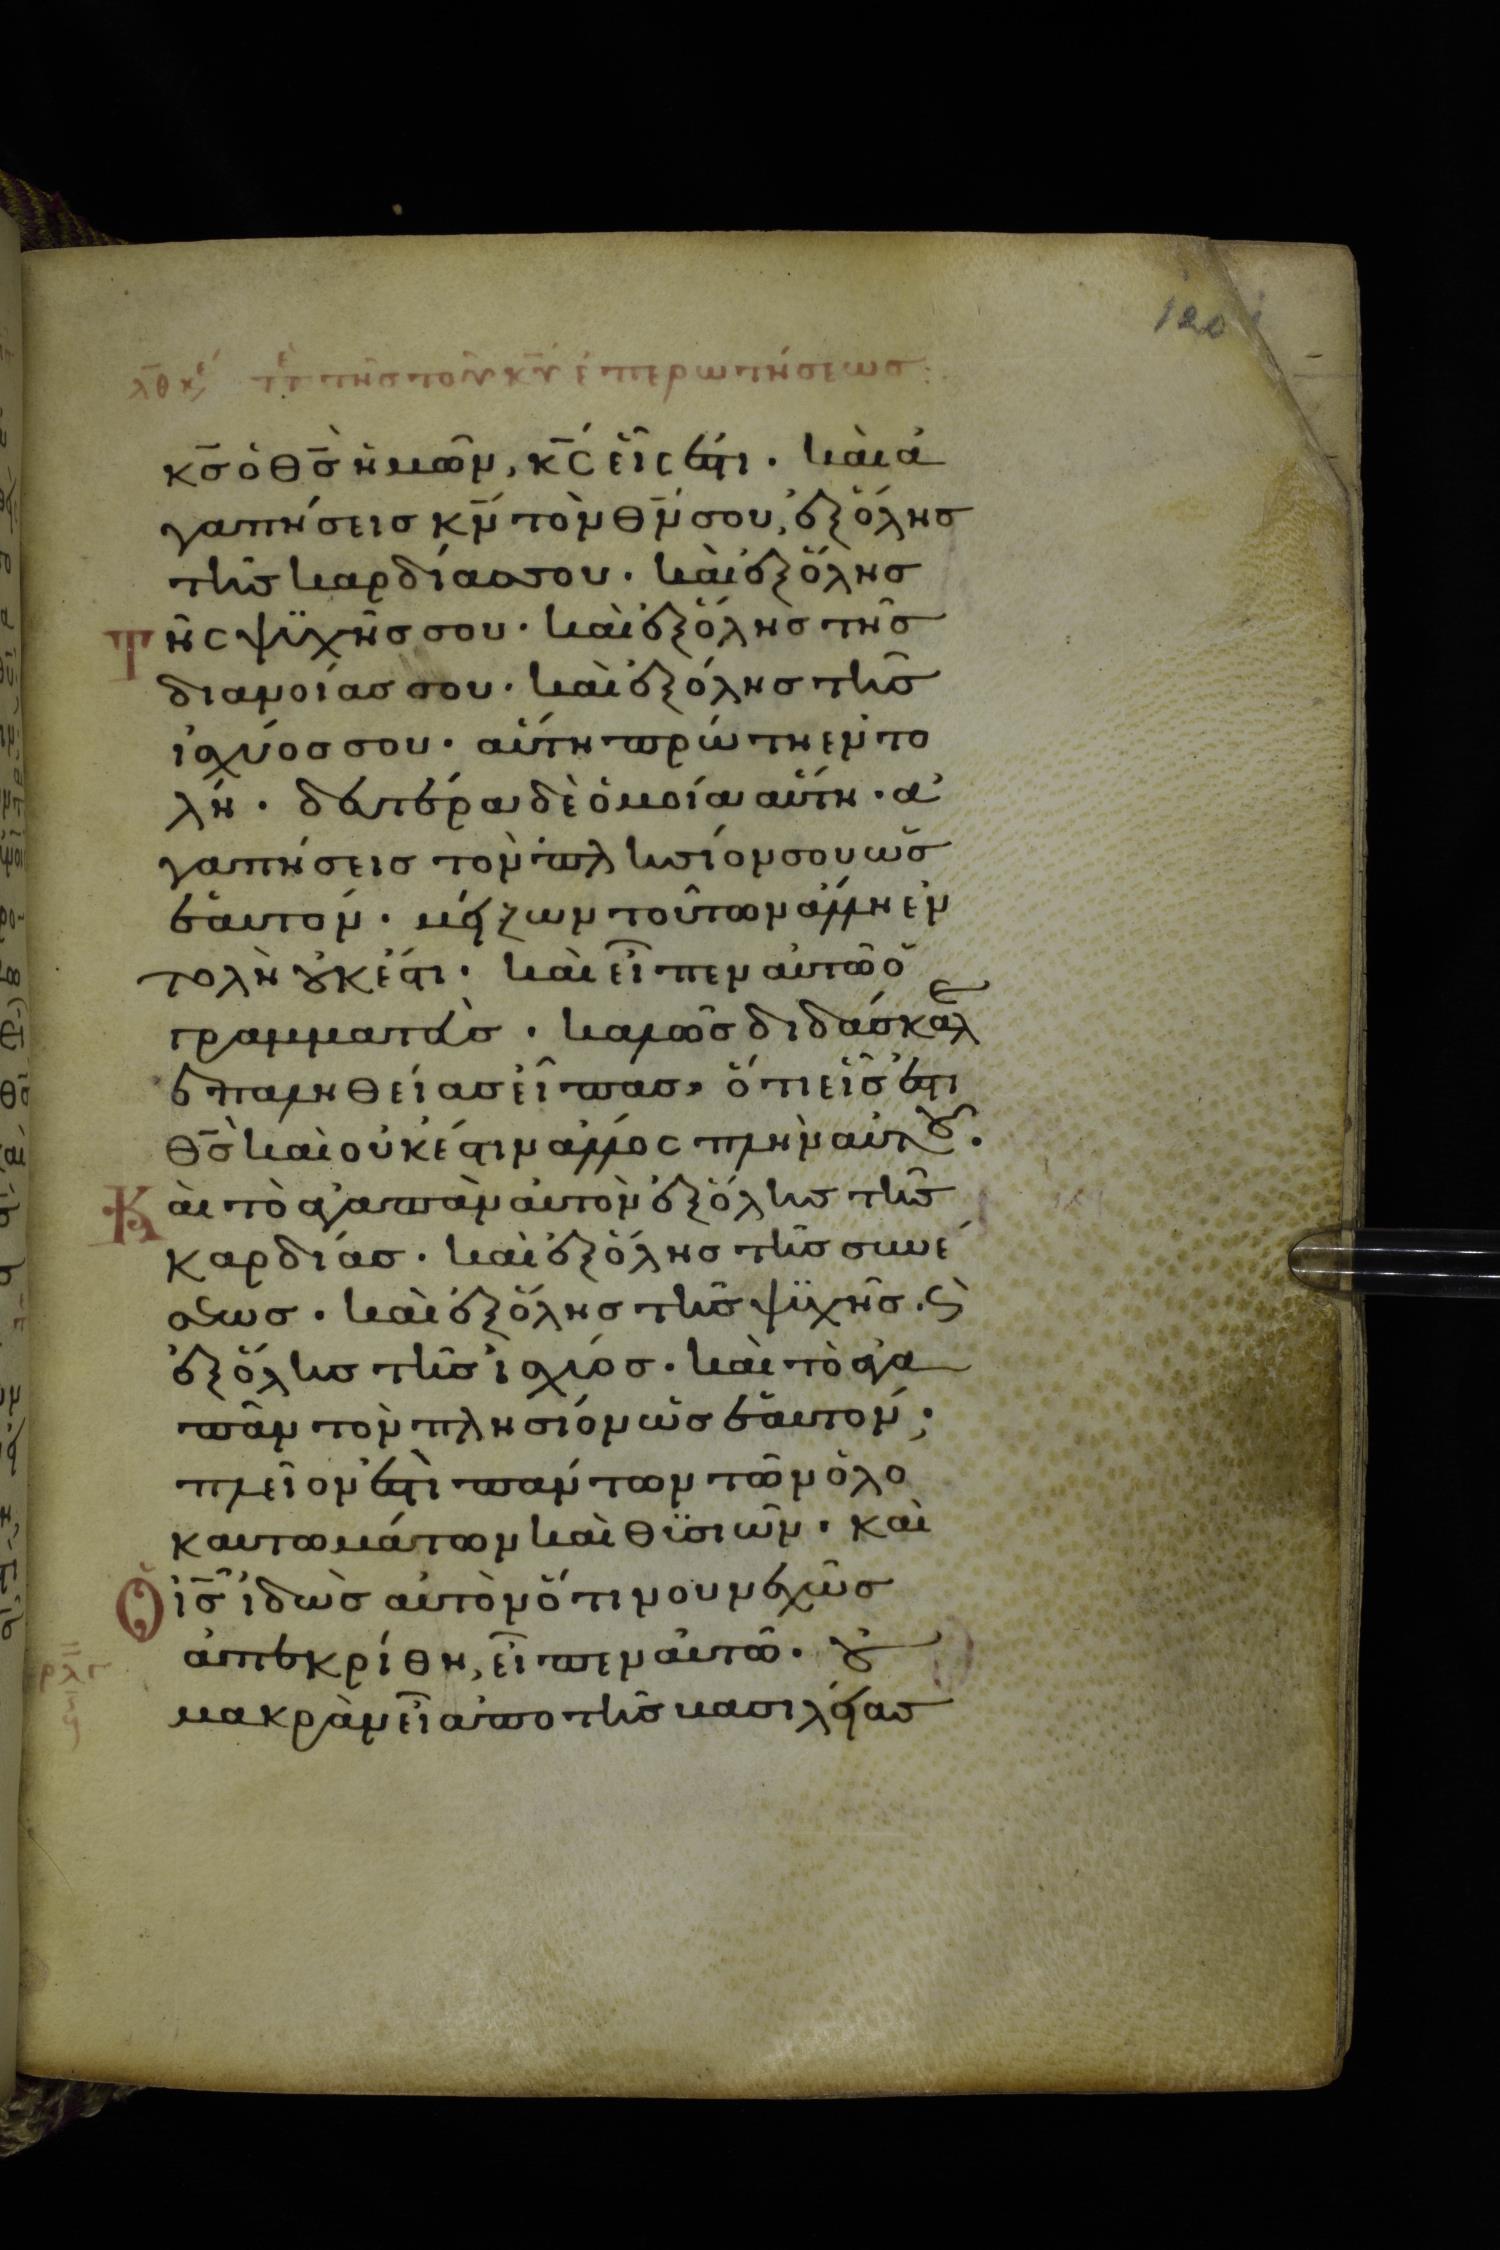 120
τῆς τοῦ κ̅υ̅ ἐπερωτήσεως:
κ̅σ̅ ὁ θ̅σ̅ ἡμῶν, κ̅ς̅ εἷς ἐστι· καὶ ἀ
γαπήσεισ κ̅ν̅ τὸν θ̅ν̅ σου, ἐξ ὅλησ
τῆς καρδίασ σου· καὶ ἐξ ὅλησ
τῆς ψϋχῆσ σου· καὶ ἐξ ὅλησ τῆσ
διανοίασ σου· καὶ ἐξ ὅλησ τῆσ
ἰσχύοσ σου· αὕτη πρώτη ἐντο
λή· δευτέρα δὲ ὁμοία αὕτη· ἀ
γαπήσεισ τὸν πλησίον σου ὡσ
ἑαυτόν· μείζων τούτων ἄλλη ἐν
τολὴ οὐκ ἔστι· καὶ εἶπεν αὐτῶ ὁ
γραμματεὺσ· καλῶσ διδάσκαλε
ἐπ αληθείασ εἶπασ, ὅτι εἷσ ἐστι
θ̅σ̅ καὶ οὐκ έστιν ἄλλος πλὴν αὐτοῦ.
Κὰι τὸ ἀγαπᾶν αὐτὸν ἐξ ὅλησ τῆσ
καρδίασ· καὶ ἐξ ὅλησ τῆσ συνέ
σεωσ· καὶ ἐξ ὅλησ τῆσ ψϋχῆσ· ϛ̀
ἐξ ὅλησ τῆσ ἰσχύοσ· καὶ τὸ ἀγα
πᾶν τὸν πλησίον ὡσ ἑαυτόν;
πλεῖον ἐστὶ πάντων τῶν ὁλο
καυτωμάτων καὶ θϋσιῶν· καὶ
Ὁ ι̅σ̅ ἰδὼσ αὐτὸν ὅτι νουνεχῶσ
ἀπεκρίθη, εἶπεν αὐτῶ· οὐ
μακρὰν εἶ ἀπο τῆσ βασιλείασ